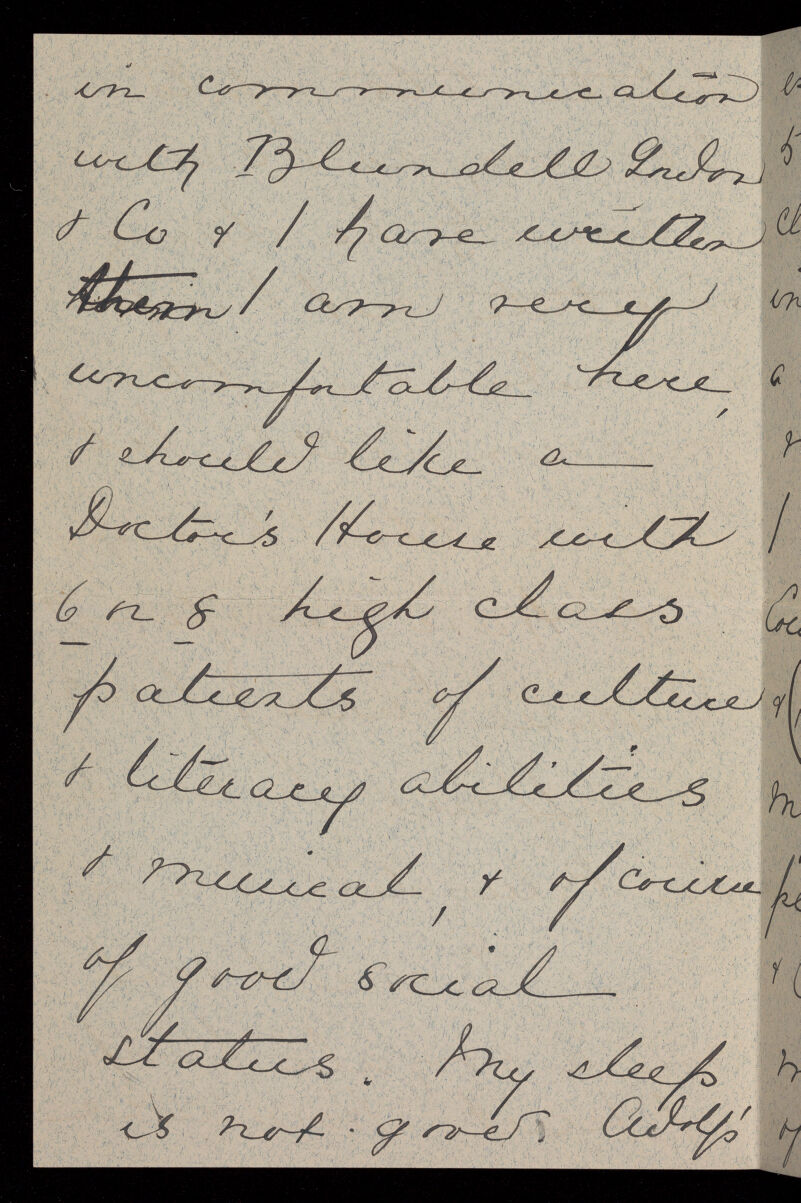 in communication
with Blundell Gordon
& Co & I have written
them I am very
uncomfortable here,
& should like a
Doctor's House with
6 or 8 high class
patients of culture
& literary abilities
& musical, & of course
of good social
status. My sleep
is not good. Adolf's